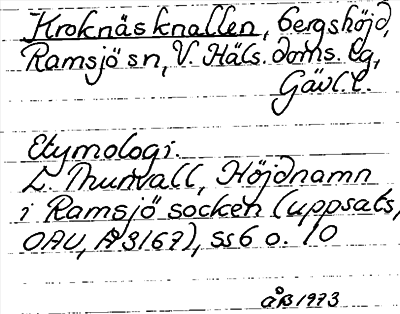 Kroknäsknallen, bergshöjd,
Ramsjö sn, V. Häls. doms. lg,
Gävl. l.
Etymologi.
L. Thunvall, Höjdnamn
i Ramsjö socken (uppsats,
OAU, 3167), ss 6 o. 10
ÅB 1973